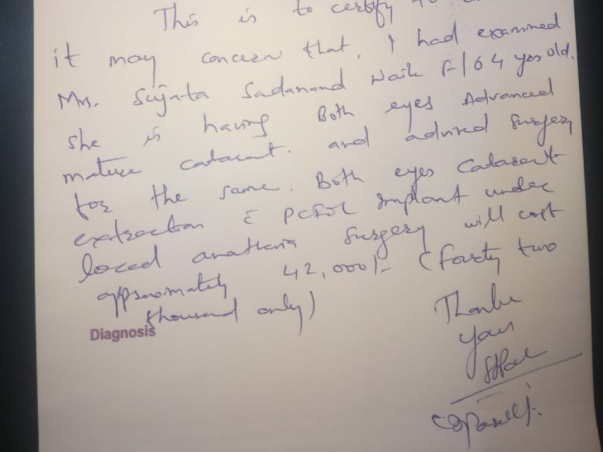 This is to certify to
it may concern that, I had examined
Mrs. Sujata Sadanand Naik F/64 yrs old.
She is having Both eyes Advanced
mature cataract. and advised surgery
for the same. Both eyes Cataract
extraction c̄ PCIOL Implant under
local anathesia surgery will cost
approximately 42,000/- (forty two
thousand only)
Diagnosis
Thanks
Yours